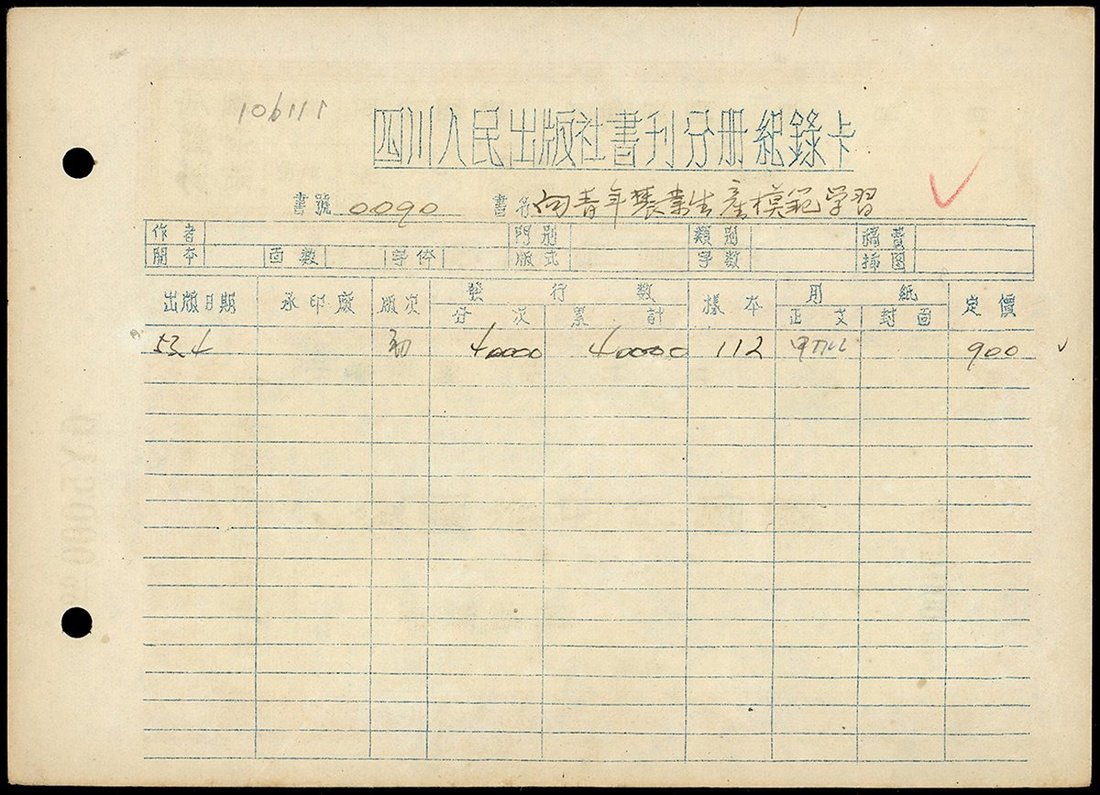 106111
四川人民出版社書刊分册紀錄卡
書號 0090 書名 向青年農業生產模範学習
作者 門别 類别 稿費
開本 面數 字体 版式 字数 插図
出版日期 承印廠 版次 發行数 樣本 用紙 定價
分次 累計 正文 封面
53.4 初 40000 40000 112 900